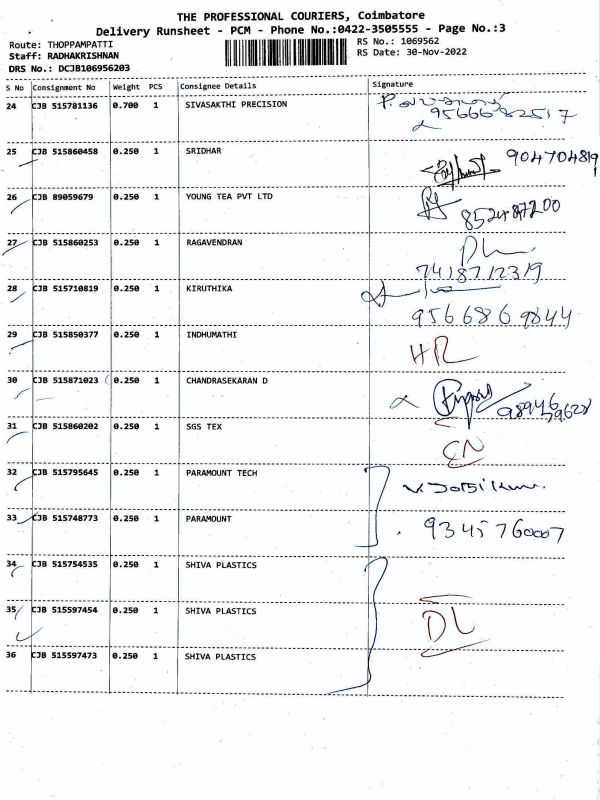 THE PROFESSIONAL COURIERS, Coimbatore
Delivery Runsheet - PCM - Phone No.:0422-3505555 - Page No.:3
Route: THOPPAMPATTI
Staff: RADHAKRISHNAN
DRS No.: DCJB106956203
RS No.: 1069562
RS Date: 30-Nov-2022
S No Consignment No Weight PCS Consignee Details Signature
24 CJB 515781136 0.700 1 SIVASAKTHI PRECISION
9566682517
25 CJB 515860458 0.250 1 SRIDHAR
904704819
26 CJB 89059679 0.250 1 YOUNG TEA PVT LTD
852487200
27 CJB 515860253 0.250 1 RAGAVENDRAN
7418712319
28 CJB 515710819 0.250 1 KIRUTHIKA
9566869844
29 CJB 515850377 0.250 1 INDHUMATHI
HR
30 CJB 515871023 0.250 1 CHANDRASEKARAN D
31 CJB 515860202 0.250 1 SGS TEX
CN
32 CJB 515795645 0.250 1 PARAMOUNT TECH
33 CJB 515748773 0.250 1 PARAMOUNT
9345760007
34 CJB 515754535 0.250 1 SHIVA PLASTICS
35 CJB 515597454 0.250 1 SHIVA PLASTICS
DL
36 CJB 515597473 0.250 1 SHIVA PLASTICS